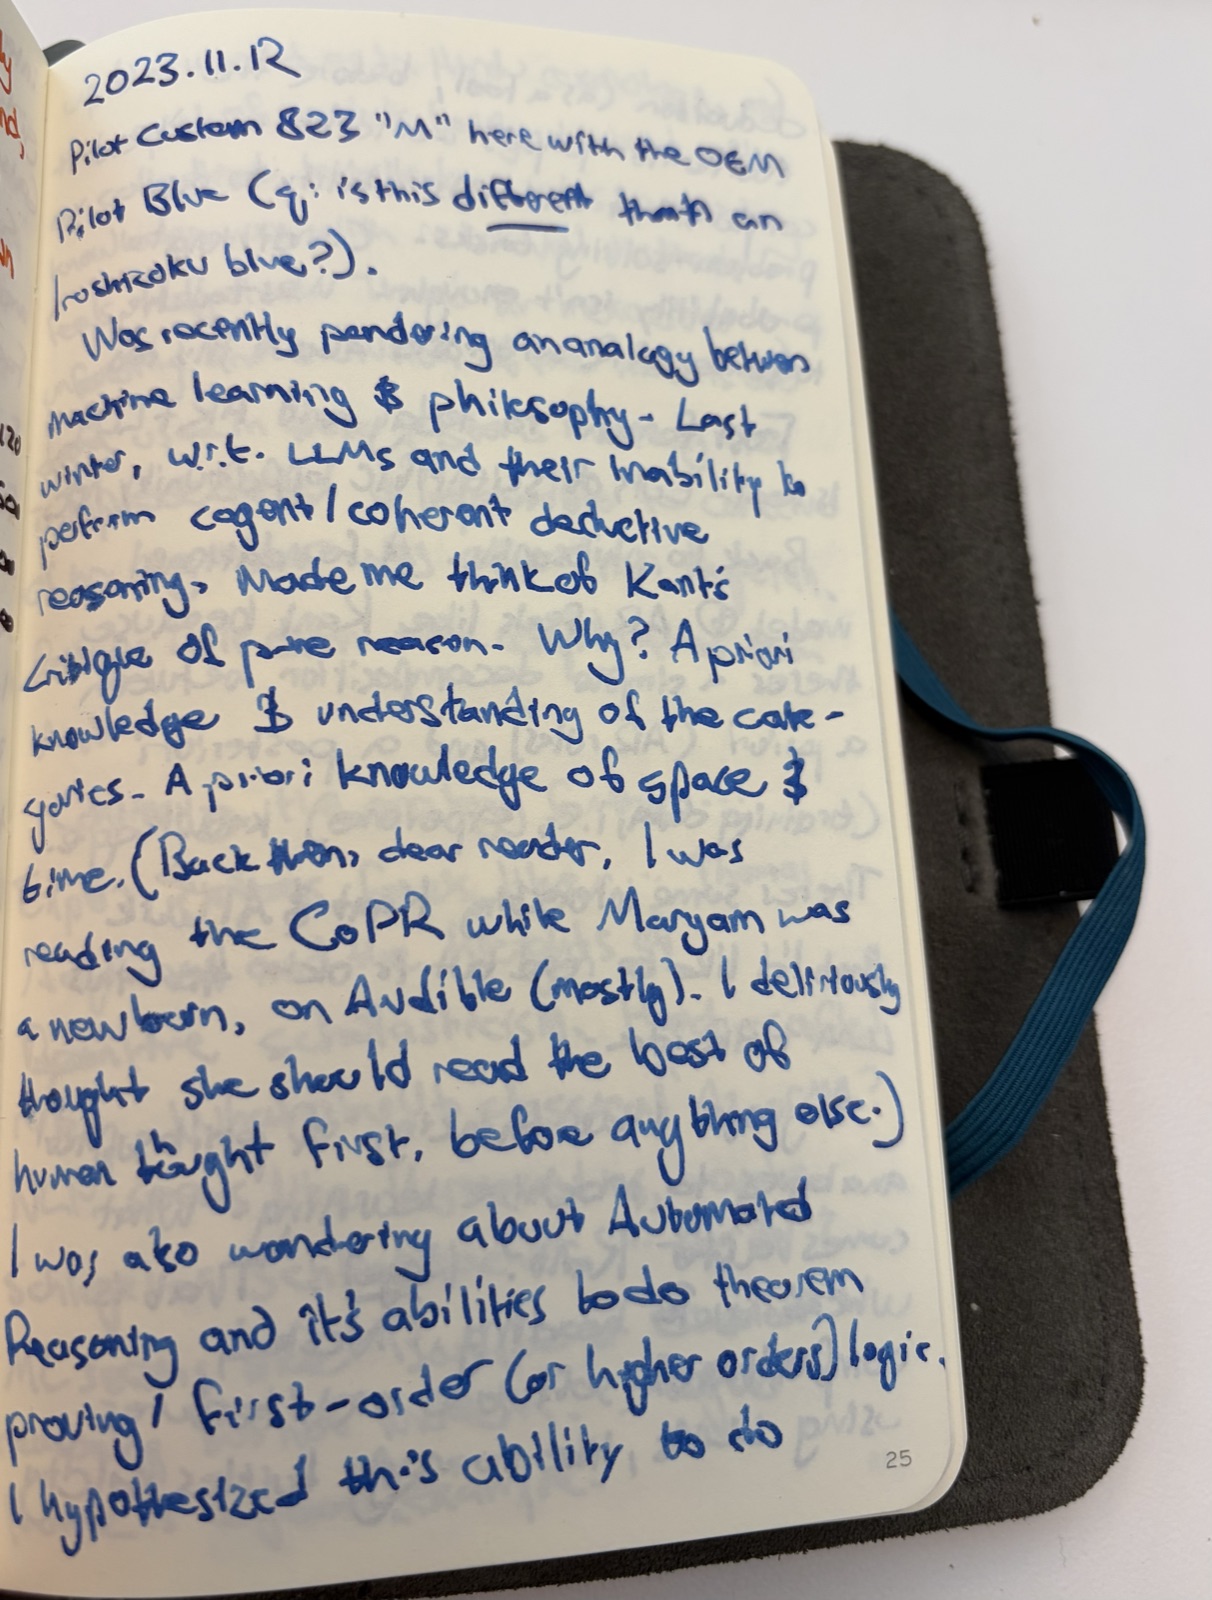 2023.11.12
Pilot Custom 823 "M" here with the OEM
Pilot Blue (q: is this different than an
Iroshizuku blue?).
Was recently pondering an analogy between
machine learning & philosophy. Last
winter, w.r.t. LLMs and their inability to
perform cogent/coherent deductive
reasoning, Made me think of Kant's
Critique of pure reason. Why? A priori
knowledge & understanding of the cate-
gories. A priori knowledge of space &
time. (Back then, dear reader, I was
reading the CoPR while Maryam was
a newborn, on Audible (mostly). I deliriously
thought she should read the best of
human thought first, before anything else.)
I was also wondering about Automated
Reasoning and it's abilities to do theorem
proving / first-order (or higher orders) logic.
I hypothesized this ability to do
25